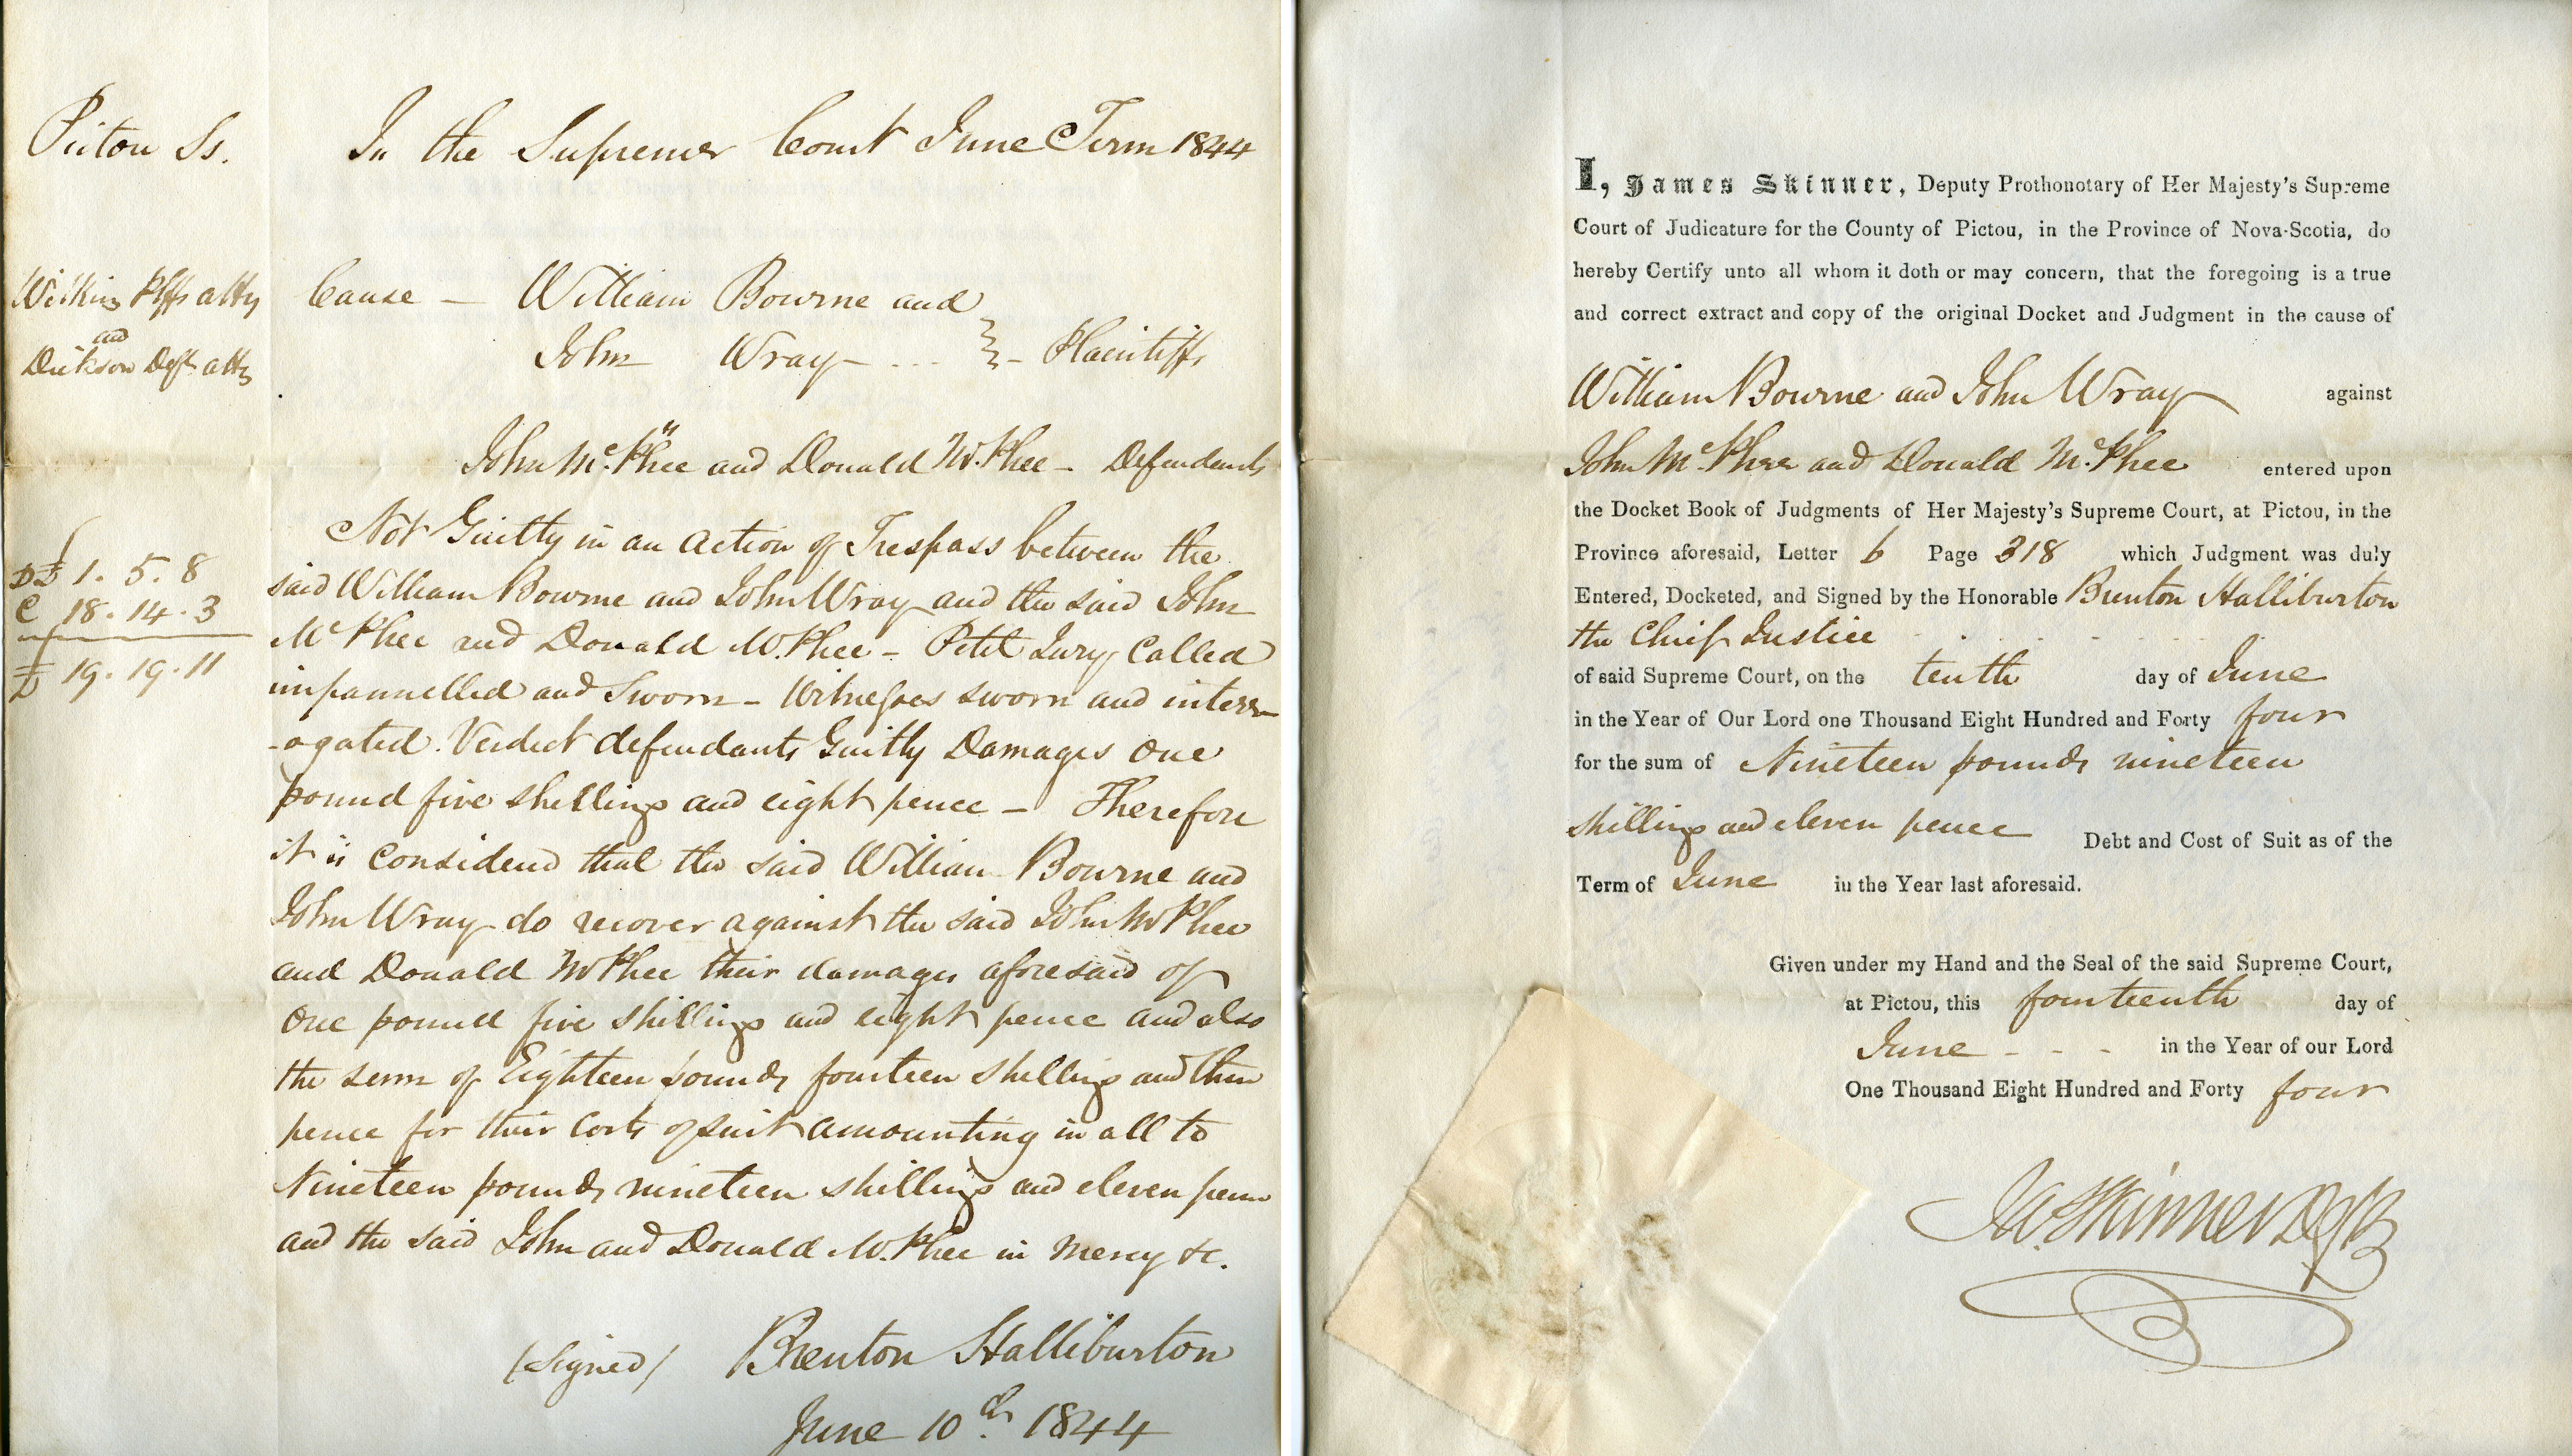 Pictou Ss.
In the Supreme Court June Term 1844
Wilkins Plffs atty
and
Dickson Defts atty
Cause – William Bourne and
John Wray – Plaintiffs
John McPhee and Donald McPhee – Defendants
D £ 1. 5. 8
C 18. 14. 3
£ 19. 19. 11
Not Guilty in an action of Trespass between the
said William Bourne and John Wray and the said John
McPhee and Donald McPhee – Petit Jury Called
impannelled and Sworn – Witnesses sworn and interr-
-ogated. Verdict defendants Guilty Damages One
pound five shillings and eight pence – Therefore
it is considered that the said William Bourne and
John Wray do recover against the said John McPhee
and Donald McPhee their damages aforesaid of
One pound five shillings and eight pence and also
the sum of Eighteen pounds fourteen shillings and three
pence for their Costs of suit amounting in all to
Nineteen pounds nineteen shillings and eleven pence
and the said John and Donald McPhee in mercy &c.
(Signed) Brenton Halliburton
June 10th 1844
I, James Skinner, Deputy Prothonotary of Her Majesty's Supreme
Court of Judicature for the County of Pictou, in the Province of Nova-Scotia, do
hereby Certify unto all whom it doth or may concern, that the foregoing is a true
and correct extract and copy of the original Docket and Judgment in the cause of
William Bourne and John Wray against
John McPhee and Donald McPhee entered upon
the Docket Book of Judgments of Her Majesty's Supreme Court, at Pictou, in the
Province aforesaid, Letter b Page 318 which Judgment was duly
Entered, Docketed, and Signed by the Honorable Brenton Halliburton
the Chief Justice
of said Supreme Court, on the tenth day of June
in the Year of Our Lord one Thousand Eight Hundred and Forty four
for the sum of Nineteen pounds nineteen
shillings and eleven pence Debt and Cost of Suit as of the
Term of June in the Year last aforesaid.
Given under my Hand and the Seal of the said Supreme Court,
at Pictou, this fourteenth day of
June - - - in the Year of our Lord
One Thousand Eight Hundred and Forty four
Jas. Skinner